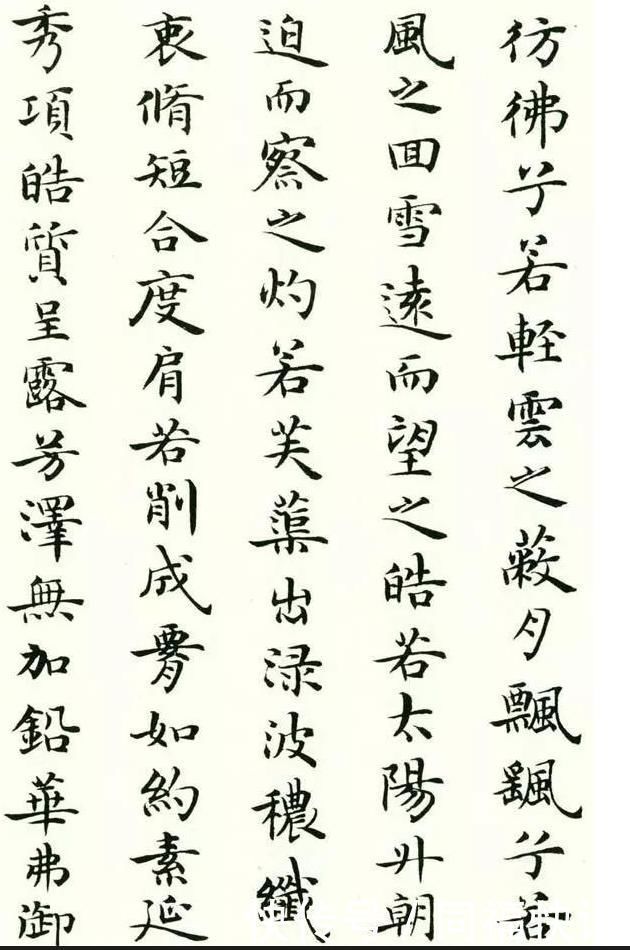 彷彿兮若輕雲之蔽月飄飖兮若
風之囬雪遠而望之皓若太陽升朝
迫而察之灼若芙蕖出渌波穠纖
衷脩短合度肩若削成腰如約素延
秀項皓質呈露芳澤無加鉛華弗御